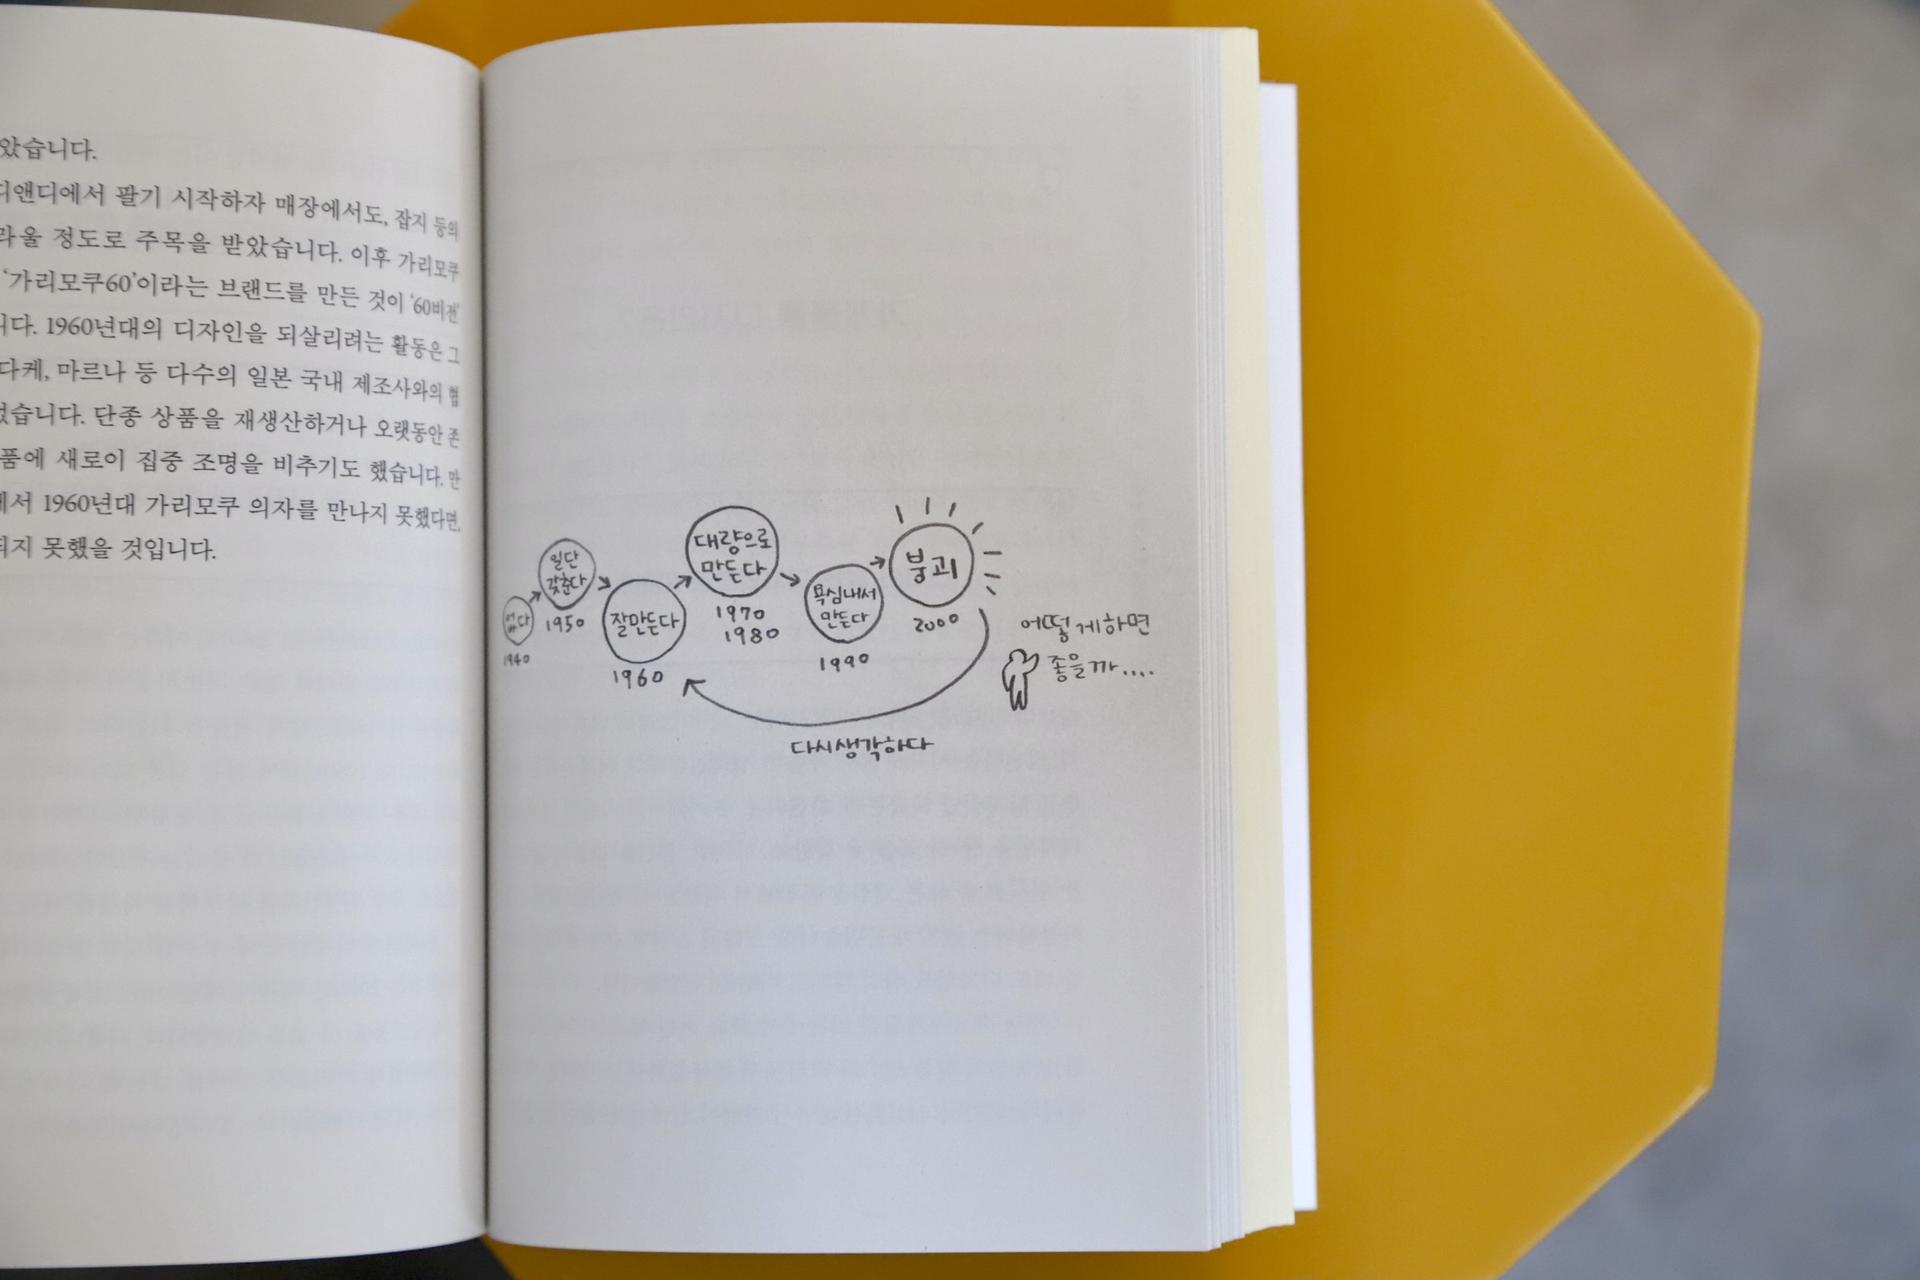 았습니다.
디앤디에서 팔기 시작하자 매장에서도, 잡지 등의
라울 정도로 주목을 받았습니다. 이후 가리모쿠
‘가리모쿠60’이라는 브랜드를 만든 것이 ‘60비전’
니다. 1960년대의 디자인을 되살리려는 활동은 그
다케, 마르나 등 다수의 일본 국내 제조사와의 협
었습니다. 단종 상품을 재생산하거나 오랫동안 존
품에 새로이 집중 조명을 비추기도 했습니다. 만
에서 1960년대 가리모쿠 의자를 만나지 못했다면,
되지 못했을 것입니다.
없다
1940
일단
갖춘다
1950
잘만든다
1960
대량으로
만든다
1970
1980
욕심내서
만든다
1990
붕괴
2000
어떻게하면
좋을까....
다시생각하다